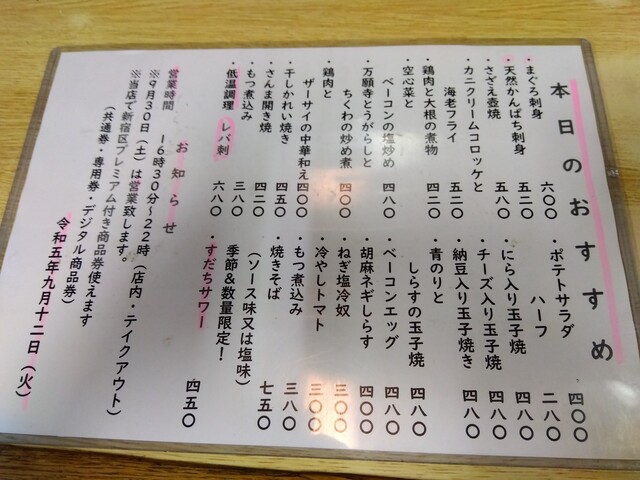 本日のおすすめ
・まぐろ刺身 六〇〇
・天然かんぱち刺身 五二〇
・さざえ壺焼 五八〇
・カニクリームコロッケと
海老フライ 五二〇
・鶏肉と大根の煮物 四二〇
・空心菜と
ベーコンの塩炒め 四八〇
・万願寺とうがらしと
ちくわの炒め煮 四〇〇
・鶏肉と
ザーサイの中華和え 四〇〇
・干しかれい焼き 四五〇
・さんま開き焼 四二〇
・もつ煮込み 三八〇
・低温調理 レバ刺 六八〇
・ポテトサラダ 四〇〇
ハーフ 二八〇
・にら入り玉子焼 四八〇
・チーズ入り玉子焼 四八〇
・納豆入り玉子焼き 四八〇
・青のりと
しらすの玉子焼 四八〇
・ベーコンエッグ 四八〇
・胡麻ネギしらす 四〇〇
・ねぎ塩冷奴 三〇〇
・冷やしトマト 三〇〇
・もつ煮込み 三八〇
・焼きそば 七五〇
（ソース味又は塩味）
季節&数量限定！
・すだちサワー 四五〇
お知らせ
営業時間 16時30分～22時（店内・テイクアウト）
※9月30日（土）は営業致します。
※当店で新宿区プレミアム付き商品券使えます
（共通券・専用券・デジタル商品券）
令和五年九月十二日（火）